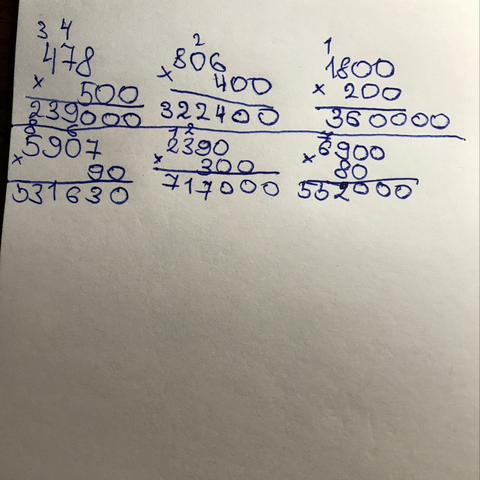 3 4 2 1
478 806 1800
× 500 × 400 × 200
239000 322400 360000
8 6 1 2 7
5907 2390 6900
× 90 × 300 × 80
531630 717000 552000